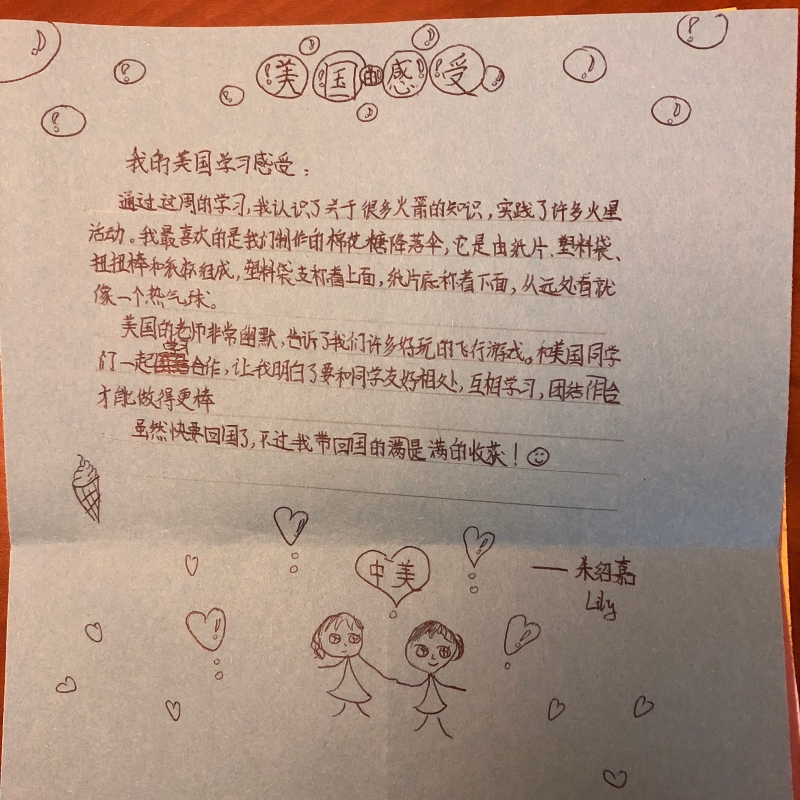 美国的感受
我的美国学习感受：
通过这周的学习，我认识了关于很多火箭的知识，实践了许多火星
活动。我最喜欢的是我们制作的棉花糖降落伞，它是由纸片、塑料袋、
扭扭棒和纸杯组成，塑料袋支称着上面，纸片底称着下面，从远处看就
像一个热气球。
美国的老师非常幽默，告诉了我们许多好玩的飞行游戏。和美国同学
们一起学习合作，让我明白了要和同学友好相处，互相学习，团结合作
才能做得更棒
虽然快要回国了，不过我带回国的满是满的收获！
中美
——朱绍嘉
Lily